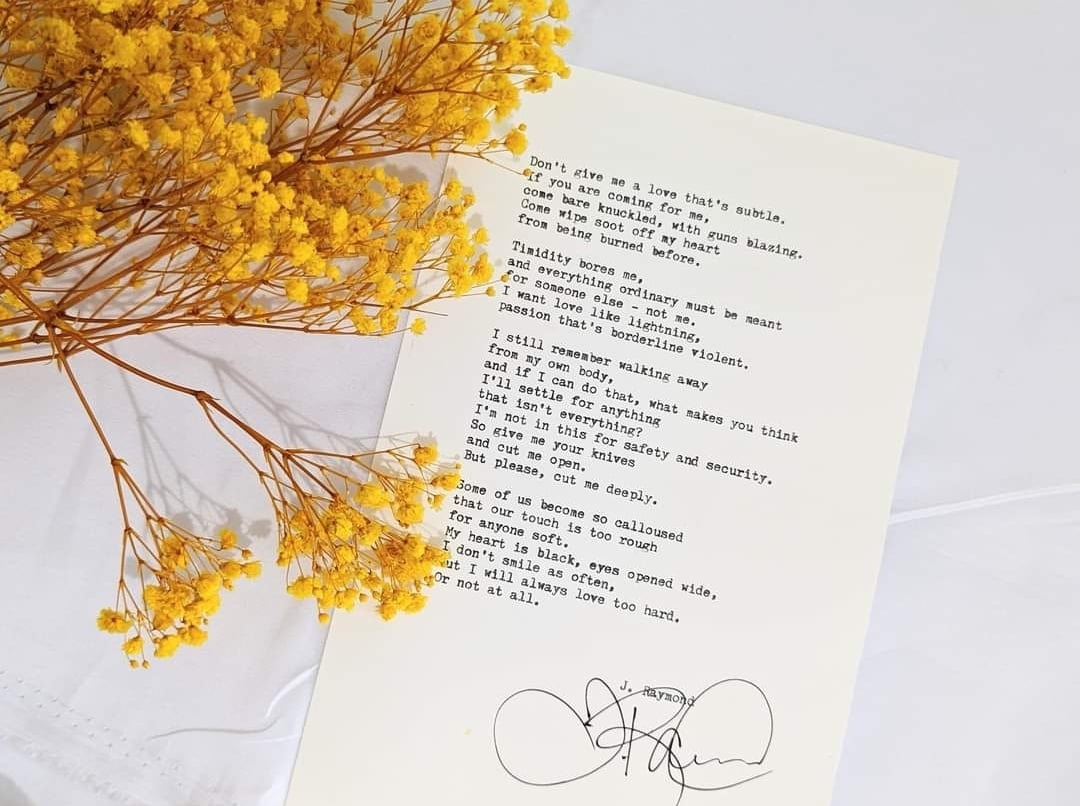 Don't give me a love that's subtle.
If you are coming for me,
come bare knuckled, with guns blazing.
Come wipe soot off my heart
from being burned before.
Timidity bores me,
and everything ordinary must be meant
for someone else - not me.
I want love like lightning,
passion that's borderline violent.
I still remember walking away
from my own body,
and if I can do that, what makes you think
I'll settle for anything
that isn't everything?
I'm not in this for safety and security.
So give me your knives
and cut me open.
But please, cut me deeply.
Some of us become so calloused
that our touch is too rough
for anyone soft.
My heart is black, eyes opened wide,
I don't smile as often,
but I will always love too hard.
Or not at all.
J. Raymond